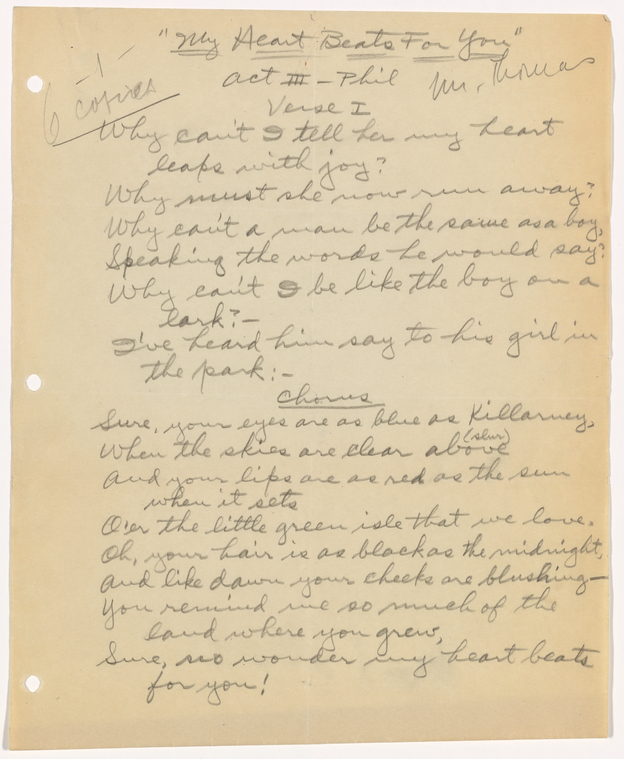 "My Heart Beats For You"
- 1 -
6 copies
Act III - Phil
Mr. Thomas
Verse I
Why can't I tell her my heart
leaps with joy?
Why must she now run away?
Why can't a man be the same as a boy,
Speaking the words he would say?
Why can't I be like the boy on a
lark?-
I've heard him say to his girl in
the park:-
Chorus
Sure, your eyes are as blue as Killarney,
When the skies are clear above
(slur)
And your lips are as red as the sun
when it sets
O'er the little green isle that we love.
Oh, your hair is as black as the midnight,
And like dawn your cheeks are blushing-
You remind me so much of the
land where you grew,
Sure, no wonder my heart beats
for you!